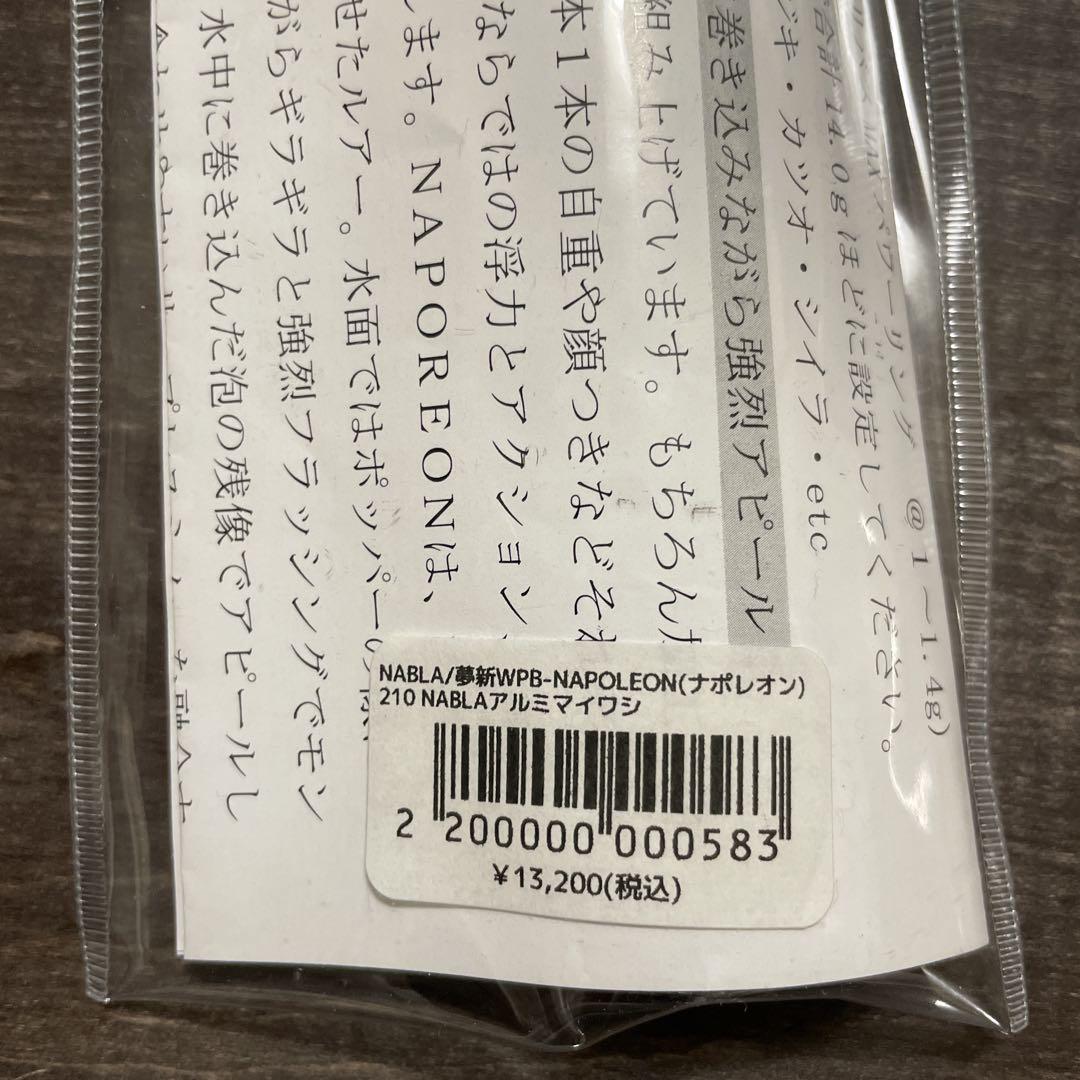 パワーリング @1～1.4g)
合計14.0gほどに設定してください。
ジキ・カツオ・シイラ・etc
巻き込みながら強烈アピール
組み上げています。もちろん
本1本の自重や顔つきなどそ
ならではの浮力とアクション、
します。NAPOREONは、
せたルアー。水面ではポッパー
がらギラギラと強烈フラッシングでモン
水中に巻き込んだ泡の残像でアピールし
NABLA/夢新WPB-NAPOLEON(ナポレオン)
210 NABLAアルミマイワシ
2 200000 000583
¥13,200(税込)